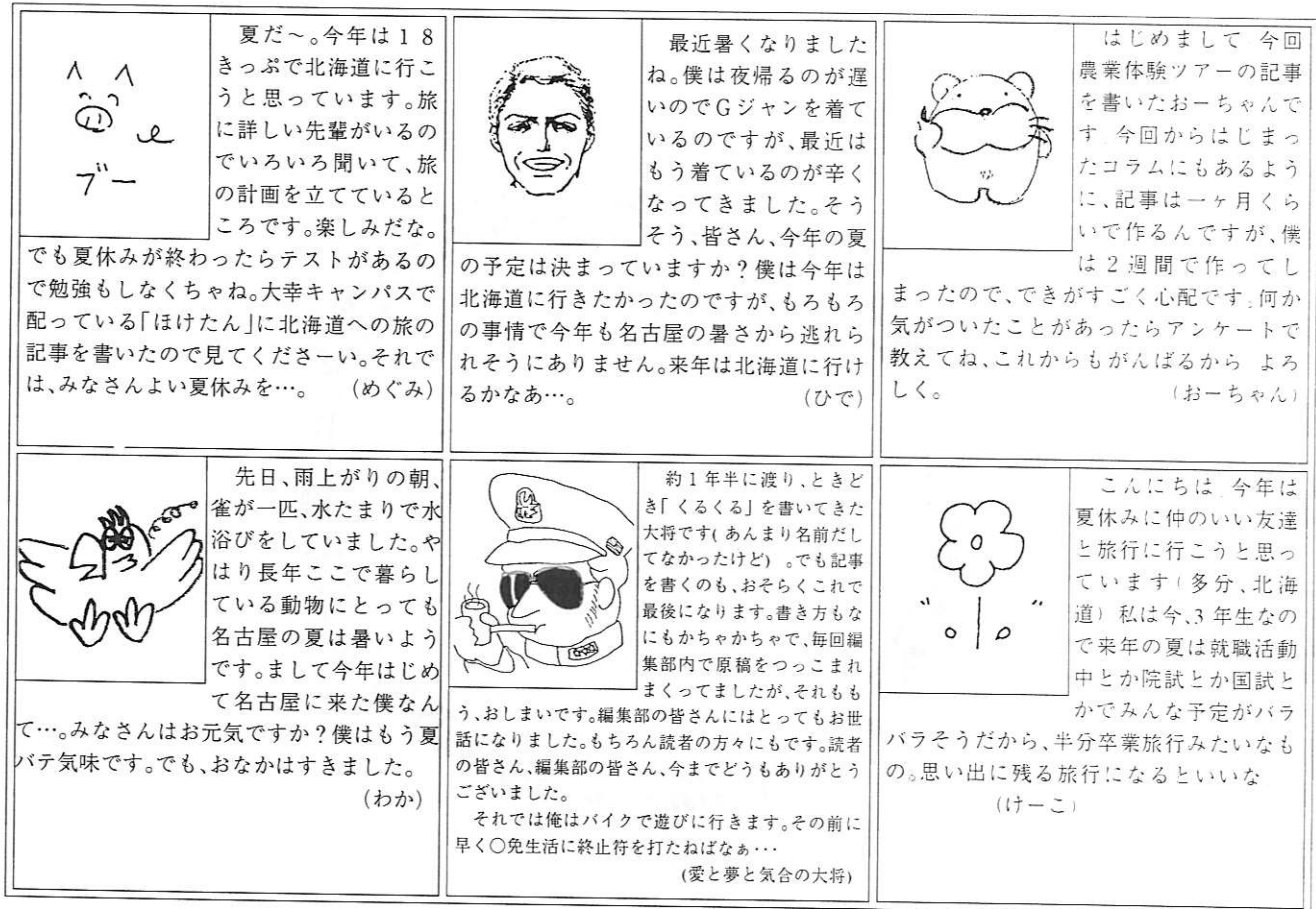 夏だ～。今年は１８
きっぷで北海道に行こ
うと思っています。旅
に詳しい先輩がいるの
でいろいろ聞いて、旅
の計画を立てていると
ころです。楽しみだな。
でも夏休みが終わったらテストがあるの
で勉強もしなくちゃね。大幸キャンパスで
配っている「ほけたん」に北海道への旅の
記事を書いたので見てくださーい。それで
は、みなさんよい夏休みを…。　（めぐみ）
ブー
最近暑くなりました
ね。僕は夜帰るのが遅
いのでGジャンを着て
いるのですが、最近は
もう着ているのが辛く
なってきました。そう
そう、皆さん、今年の夏
の予定は決まっていますか？僕は今年は
北海道に行きたかったのですが、もろもろ
の事情で今年も名古屋の暑さから逃れら
れそうにありません。来年は北海道に行け
るかなあ…。　（ひで）
はじめまして 今回
農業体験ツアーの記事
を書いたおーちゃんで
す 今回からはじまっ
たコラムにもあるよう
に、記事は一ヶ月くら
いで作るんですが、僕
は２週間で作ってし
まったので、できがすごく心配です 何か
気がついたことがあったらアンケートで
教えてね、これからもがんばるから よろ
しく。　（おーちゃん）
先日、雨上がりの朝、
雀が一匹、水たまりで水
浴びをしていました。や
はり長年ここで暮らし
ている動物にとっても
名古屋の夏は暑いよう
です。まして今年はじめ
て名古屋に来た僕なん
て…。みなさんはお元気ですか？僕はもう夏
バテ気味です。でも、おなかはすきました。
（わか）
約１年半に渡り、ときど
き「くるくる」を書いてきた
大将です(あんまり名前だし
てなかったけど) 。でも記事
を書くのも、おそらくこれで
最後になります。書き方もな
にもかちゃかちゃで、毎回編
集部内で原稿をつっこまれ
まくってましたが、それもも
う、おしまいです。編集部の皆さんにはとってもお世
話になりました。もちろん読者の方々にもです。読者
の皆さん、編集部の皆さん、今までどうもありがとう
ございました。
それでは俺はバイクで遊びに行きます。その前に
早く〇免生活に終止符を打たねばなぁ・・・
(愛と夢と気合の大将)
こんにちは 今年は
夏休みに仲のいい友達
と旅行に行こうと思っ
ています（多分、北海
道）私は今、3年生なの
で来年の夏は就職活動
中とか院試とか国試と
かでみんな予定がバラ
バラそうだから、半分卒業旅行みたいなも
の。思い出に残る旅行になるといいな
（けーこ）